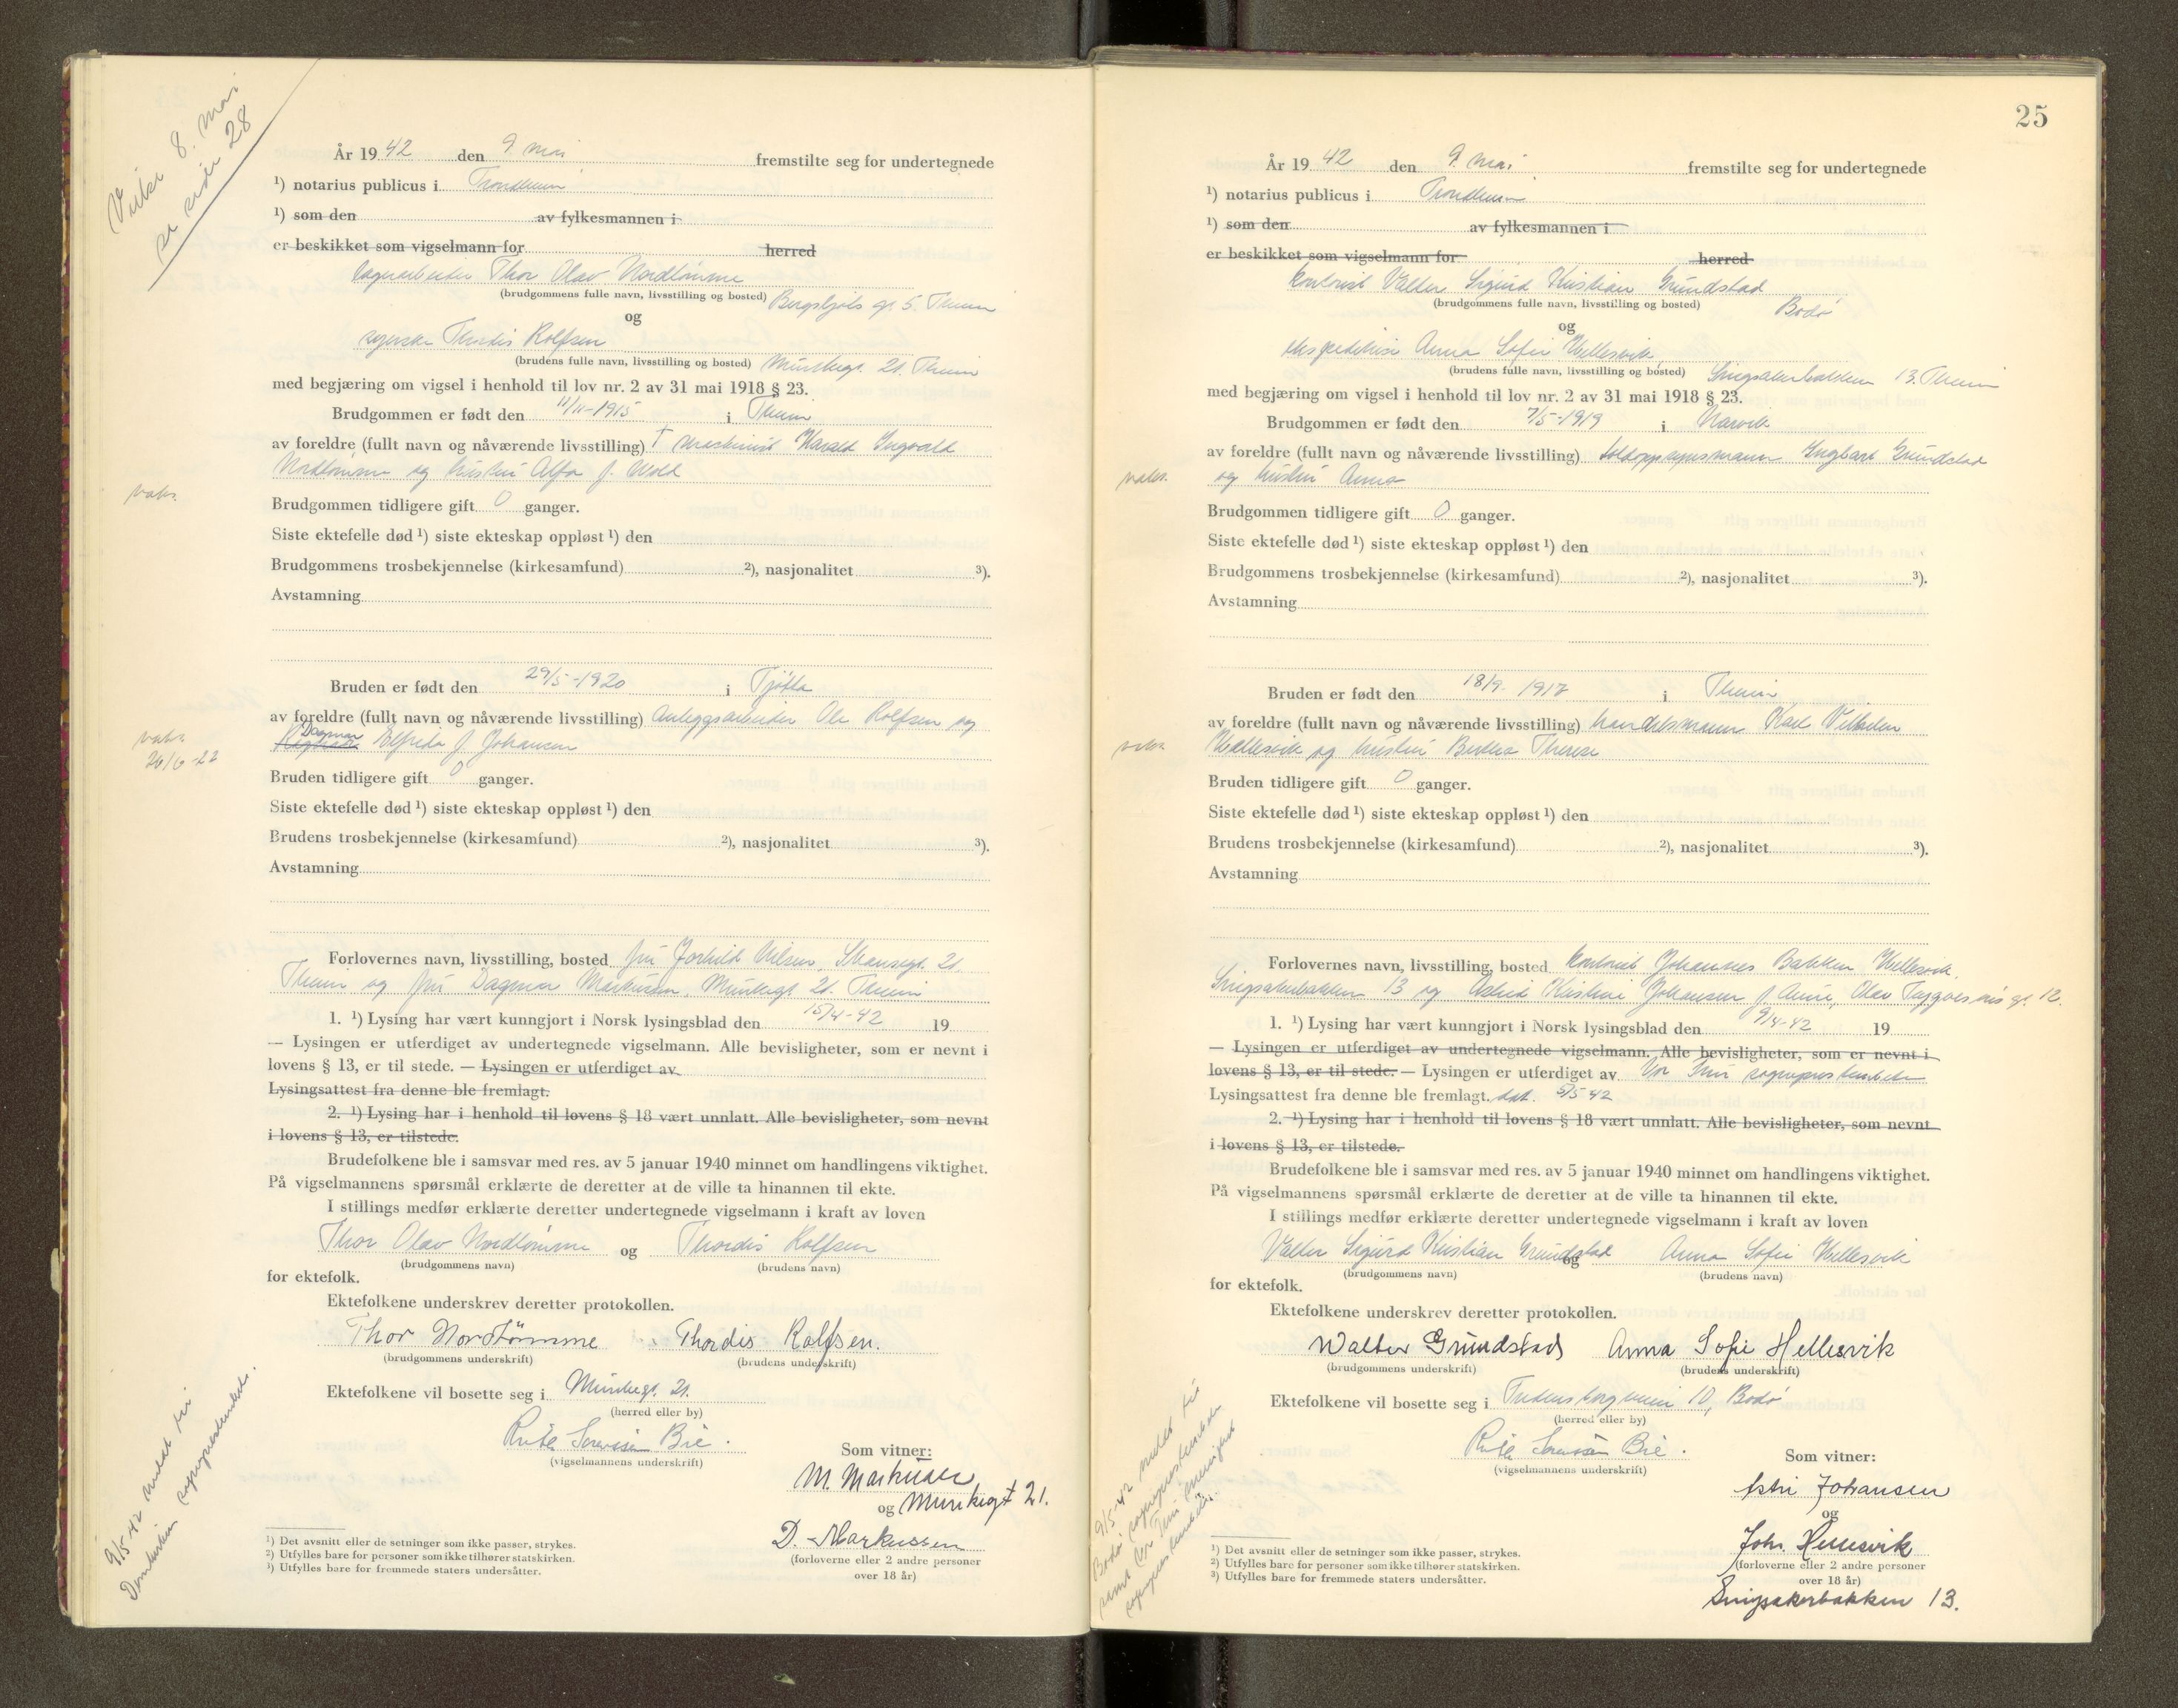 Vielse 8. mai
se side 28
År 1942 den 9. mai fremstilte seg for undertegnede
¹) notarius publicus i Trondheim
¹) som den av fylkesmannen i
er beskikket som vigselmann for herred
lagerarbeider Thor Olav Nordtömme
(brudgommens fulle navn, livsstilling og bosted) Bergsligts gt. 5. Theim
og
syerske Thordis Rolfsen
(brudens fulle navn, livsstilling og bosted) Munkegt. 21. Theim
med begjæring om vigsel i henhold til lov nr. 2 av 31 mai 1918 § 23.
Brudgommen er født den 11/11-1915 i Theim
av foreldre (fullt navn og nåværende livsstilling) † maskinist Harald Ingvald
Nordtömme og hustru Alfa f. Wold
vaks.
Brudgommen tidligere gift 0 ganger.
Siste ektefelle død ¹) siste ekteskap oppløst ¹) den
Brudgommens trosbekjennelse (kirkesamfund) ²), nasjonalitet ³).
Avstamning
Bruden er født den 29/5-1920 i Tjötta
av foreldre (fullt navn og nåværende livsstilling) Anleggsarbeider Ole Rolfsen og
Dagmar Elfrida f. Johansen
vaks.
26/6-22
Bruden tidligere gift 0 ganger.
Siste ektefelle død ¹) siste ekteskap oppløst ¹) den
Brudens trosbekjennelse (kirkesamfund) ²), nasjonalitet ³).
Avstamning
Forlovernes navn, livsstilling, bosted fru Jorhild Nilsen, Skansegt. 21.
Theim og fru Dagmar Markussen, Munkegt 21. Theim
1. ¹) Lysing har vært kunngjort i Norsk lysingsblad den 15/4-42 19
— Lysingen er utferdiget av undertegnede vigselmann. Alle bevisligheter, som er nevnt i
lovens § 13, er til stede. — Lysingen er utferdiget av
Lysingsattest fra denne ble fremlagt.
2. ¹) Lysing har i henhold til lovens § 18 vært unnlatt. Alle bevisligheter, som nevnt
i lovens § 13, er tilstede.
Brudefolkene ble i samsvar med res. av 5 januar 1940 minnet om handlingens viktighet.
På vigselmannens spørsmål erklærte de deretter at de ville ta hinannen til ekte.
I stillings medfør erklærte deretter undertegnede vigselmann i kraft av loven
Thor Olav Nordtömme og Thordis Rolfsen
(brudgommens navn) (brudens navn)
for ektefolk.
Ektefolkene underskrev deretter protokollen.
Thor Nordtömme Thordis Rolfsen.
(brudgommens underskrift) (brudens underskrift)
Ektefolkene vil bosette seg i Munkegt. 21.
(herred eller by)
Sorenssen Bie.
(vigselmannens underskrift)
Som vitner:
M. Markussen
og Munkegt 21.
D. Markussen
(forloverne eller 2 andre personer
over 18 år)
9/5-42 meldt til
Domkirken sogneprestembede.
¹) Det avsnitt eller de setninger som ikke passer, strykes.
²) Utfylles bare for personer som ikke tilhører statskirken.
³) Utfylles bare for fremmede staters undersåtter.
25
År 1942 den 9. mai fremstilte seg for undertegnede
¹) notarius publicus i Trondheim
¹) som den av fylkesmannen i
er beskikket som vigselmann for herred
kontorist Valter Sigurd Kristian Grundstad
(brudgommens fulle navn, livsstilling og bosted) Bodö
og
ekspeditrise Anna Sofie Hellesvik
(brudens fulle navn, livsstilling og bosted) Singsakerbakken 13. Theim
med begjæring om vigsel i henhold til lov nr. 2 av 31 mai 1918 § 23.
Brudgommen er født den 7/5-1919 i Narvik
av foreldre (fullt navn og nåværende livsstilling) tolloppsynsmann Engbart Grundstad
og hustru Anna
vaks.
Brudgommen tidligere gift 0 ganger.
Siste ektefelle død ¹) siste ekteskap oppløst ¹) den
Brudgommens trosbekjennelse (kirkesamfund) ²), nasjonalitet ³).
Avstamning
Bruden er født den 18/9-1917 i Theim
av foreldre (fullt navn og nåværende livsstilling) handelsmann Karl Vilhelm
Hellesvik og hustru Berthea Therese
vaks.
Bruden tidligere gift 0 ganger.
Siste ektefelle død ¹) siste ekteskap oppløst ¹) den
Brudens trosbekjennelse (kirkesamfund) ²), nasjonalitet ³).
Avstamning
Forlovernes navn, livsstilling, bosted kontorist Johannes Bakken Hellesvik,
Singsakerbakken 13 og Astrid Kristine Johansen f. Aune, Olav Tryggvesöns gt. 12.
1. ¹) Lysing har vært kunngjort i Norsk lysingsblad den 9/4-42 19
— Lysingen er utferdiget av undertegnede vigselmann. Alle bevisligheter, som er nevnt i
lovens § 13, er til stede. — Lysingen er utferdiget av Vor Frue sogneprestembede
Lysingsattest fra denne ble fremlagt. dat. 5/5-42
2. ¹) Lysing har i henhold til lovens § 18 vært unnlatt. Alle bevisligheter, som nevnt
i lovens § 13, er tilstede.
Brudefolkene ble i samsvar med res. av 5 januar 1940 minnet om handlingens viktighet.
På vigselmannens spørsmål erklærte de deretter at de ville ta hinannen til ekte.
I stillings medfør erklærte deretter undertegnede vigselmann i kraft av loven
Valter Sigurd Kristian Grundstad og Anna Sofie Hellesvik
(brudgommens navn) (brudens navn)
for ektefolk.
Ektefolkene underskrev deretter protokollen.
Walter Grundstad Anna Sofie Hellesvik
(brudgommens underskrift) (brudens underskrift)
Ektefolkene vil bosette seg i Fredensborgveien 10, Bodö
(herred eller by)
Sorenssen Bie.
(vigselmannens underskrift)
Som vitner:
Astri Johansen
og
Joh. Hellesvik
(forloverne eller 2 andre personer
over 18 år)
Singsakerbakken 13.
9/5-42 meldt til
Bodö sogneprestembede
samt Vor Frue menighet
sogneprestembede.
¹) Det avsnitt eller de setninger som ikke passer, strykes.
²) Utfylles bare for personer som ikke tilhører statskirken.
³) Utfylles bare for fremmede staters undersåtter.